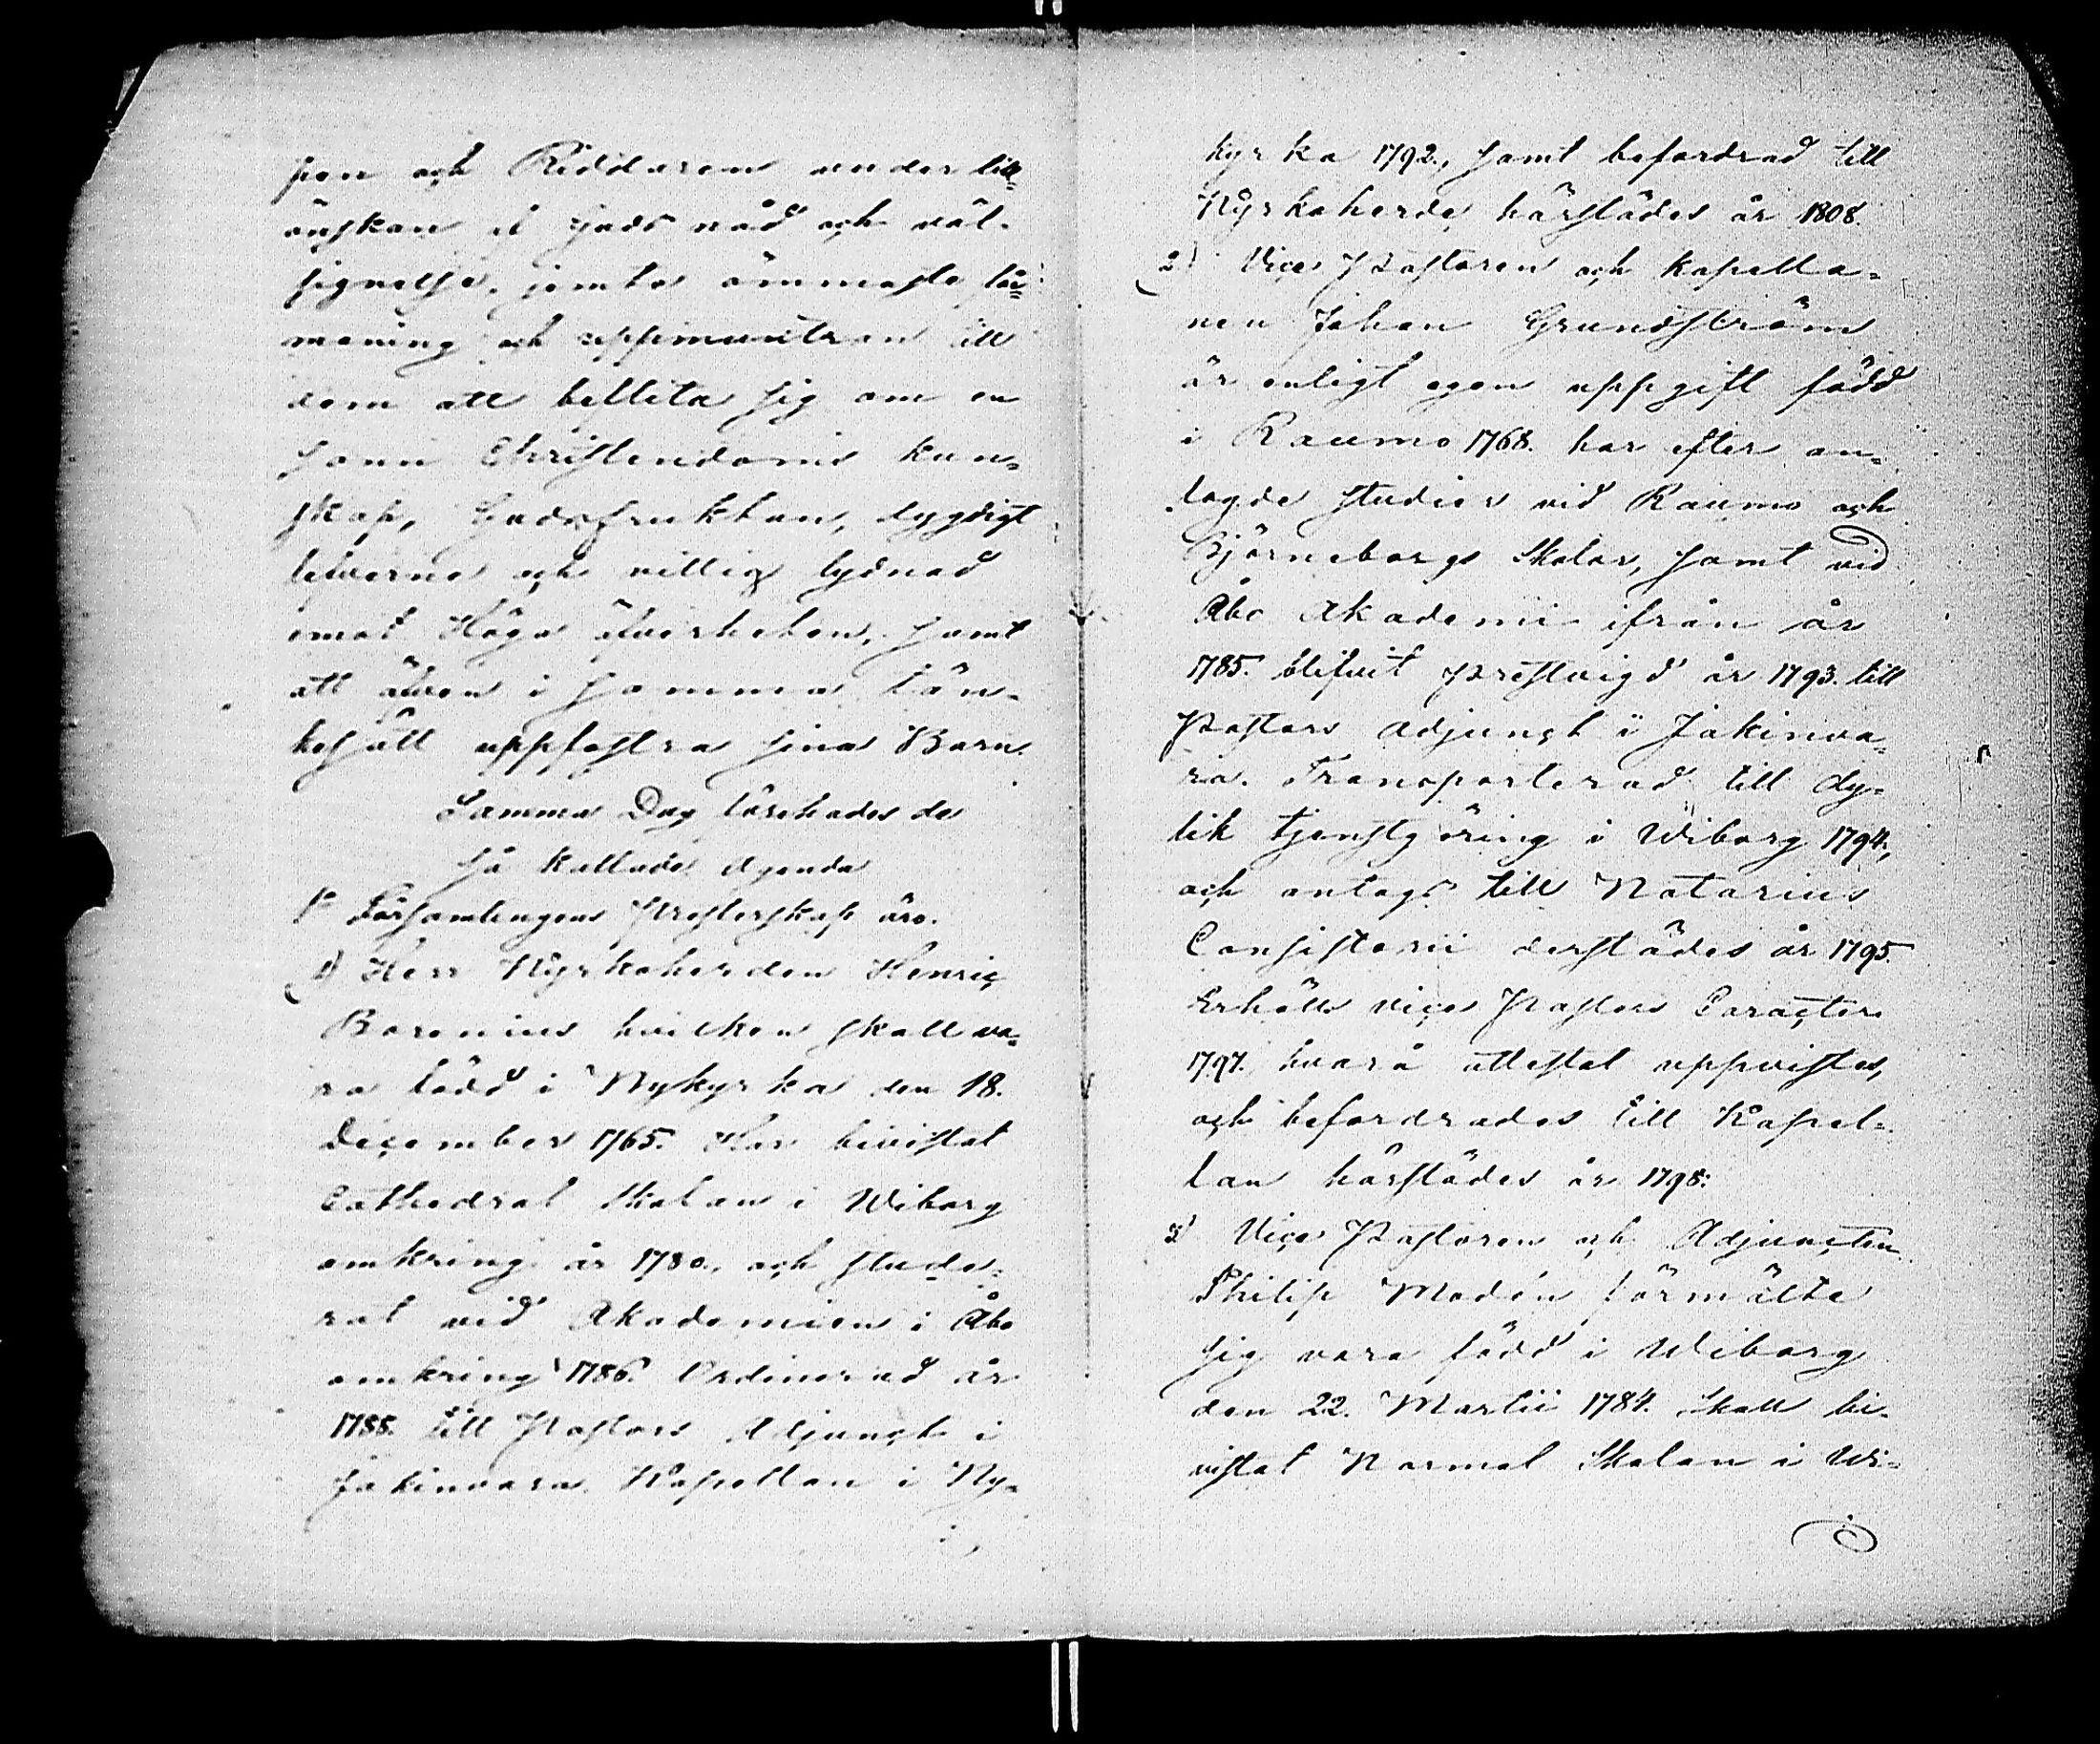 pen och Riddaren under till=
önskan af Guds nåd och väl-
signelse, jemte ömmaste för=
maning och uppmuntran till
dem att beflita sig om en
sann Christendoms kun=
skap, Gudsfruktan, dygdigt
lefverne och villig lydnad
emot Höga öfverheten, samt
att äfven i samma tän-
kesätt uppfostra sina Barn.
Samma Dag förehades de
så kallade Agenda
1o Församlingens Presterskap äro.
1) Herr Kyrkoherden Henric
Borenius hvilken skall va=
ra född i Nykyrka den 18.
December 1765. Har bivistat
Cathedral Skolan i Wiborg
omkring år 1780., och stude=
rat vid Akademien i Åbo
omkring 1786. Ordinerad år
1788. till Pastors Adjunct i
Jakimvara. Kapellan i Ny=
kyrka 1792., samt befordrad till
Kyrkoherde härstädes år 1808.
2) Vice Pastoren och Kapella=
nen Johan Grundström
är enligt egen uppgift född
i Raumo 1768. har efter an=
lagde studier vid Raumo och
Björneborgs Skolor, samt vid
Åbo Akademi ifrån år
1785. blifvit prestvigd år 1793. till
Pastors adjunct i Jakimva=
ra. Transporterad till dy=
lik tjenstgöring i Wiborg 1794.,
och antogs till Notarius
Consistorii derstädes år 1795.
Erhöll vice Pastors Caracter
1797. hvarå attestat uppvistes,
och befordrades till Kapel=
lan härstädes år 1798.
3) Vice Pastoren och Adjuncten
Philip Modén förmälte
sig vara född i Wiborg
den 22. Martii 1784. Skall bi-
vistat Normal Skolan i Wi=